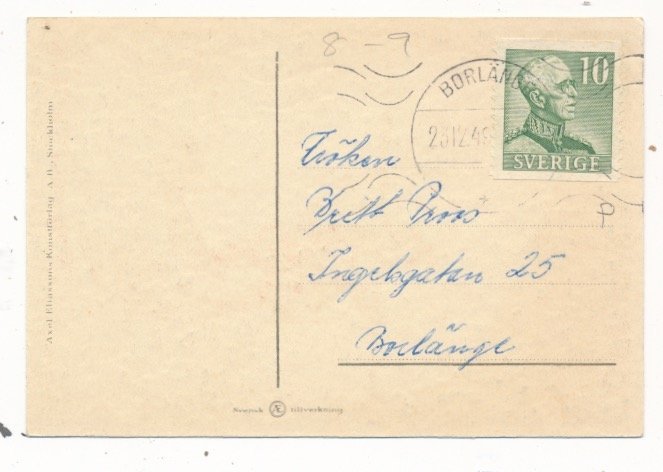 8-9
BORLÄNGE
10
SVERIGE
Fröken
Britt Roos
Ingelsgatan 25
Borlänge
a
Axel Eliassons Konstförlag A. B., Stockholm
Svensk Æ tillverkning